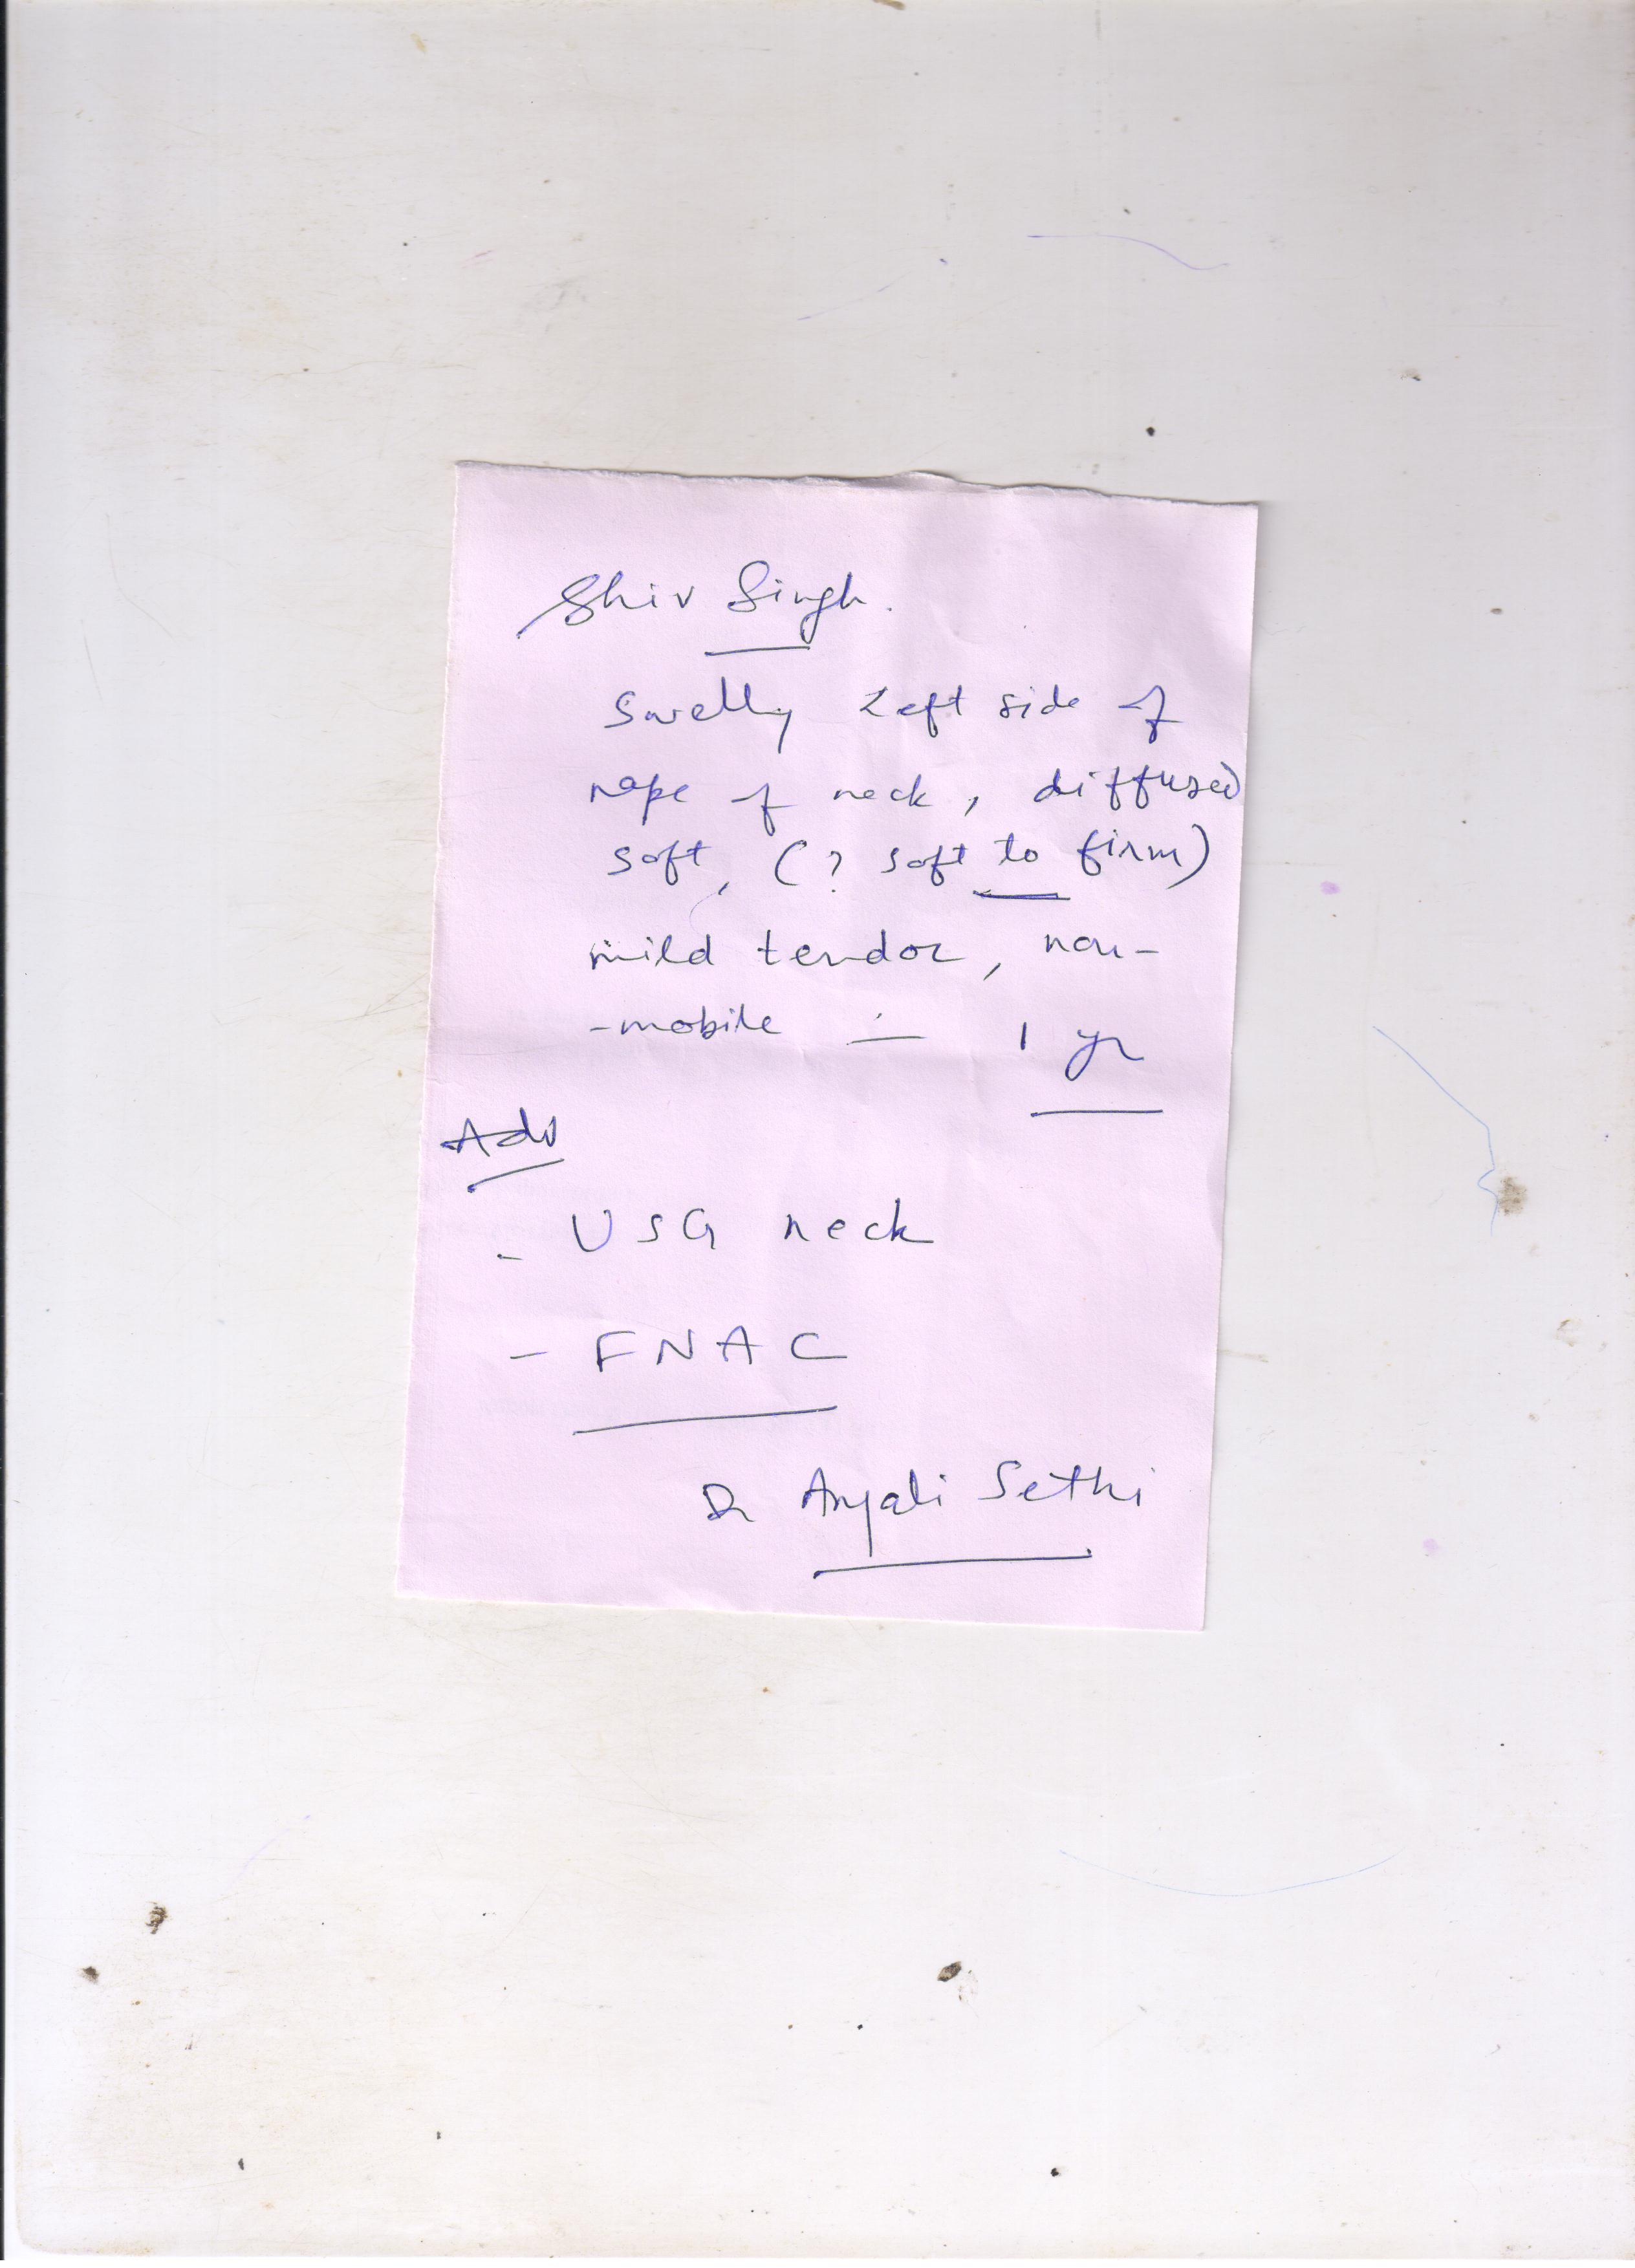 Shiv Singh.
Swelly Left side of
nape of neck, diffused
soft, (? soft to firm)
mild tendor, non-
-mobile 1 yr
Adv
- USG neck
- FNAC
Dr Anjali Sethi